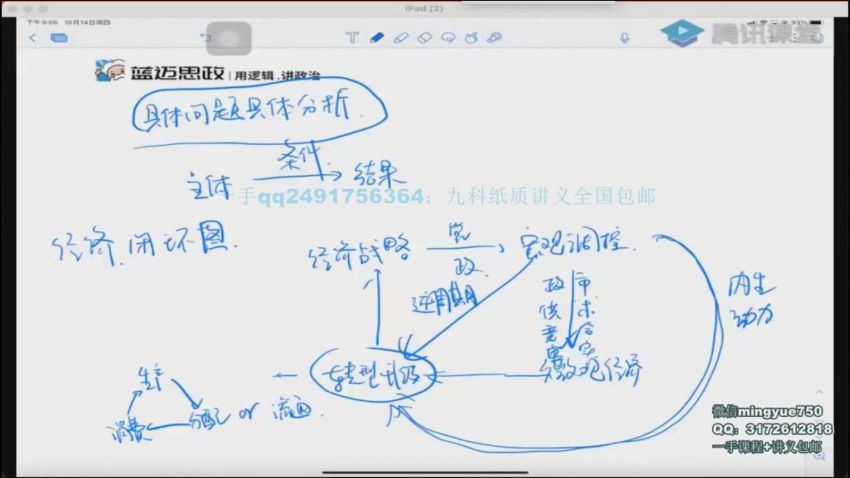 iPad (2)
下午9:06 10月14日周四
腾讯课堂
蓝迈思政 | 用逻辑,讲政治
具体问题具体分析
条件
主体 → 结果
一手qq2491756364；九科纸质讲义全国包邮
经济闭环图
经济战略
政
宏观调控
逆周期
政 市
供 求
竞
内生
动力
转型升级
微观经济
生产
消费
分配 or 流通
微信mingyue750
QQ：3172612818
一手课程+讲义包邮